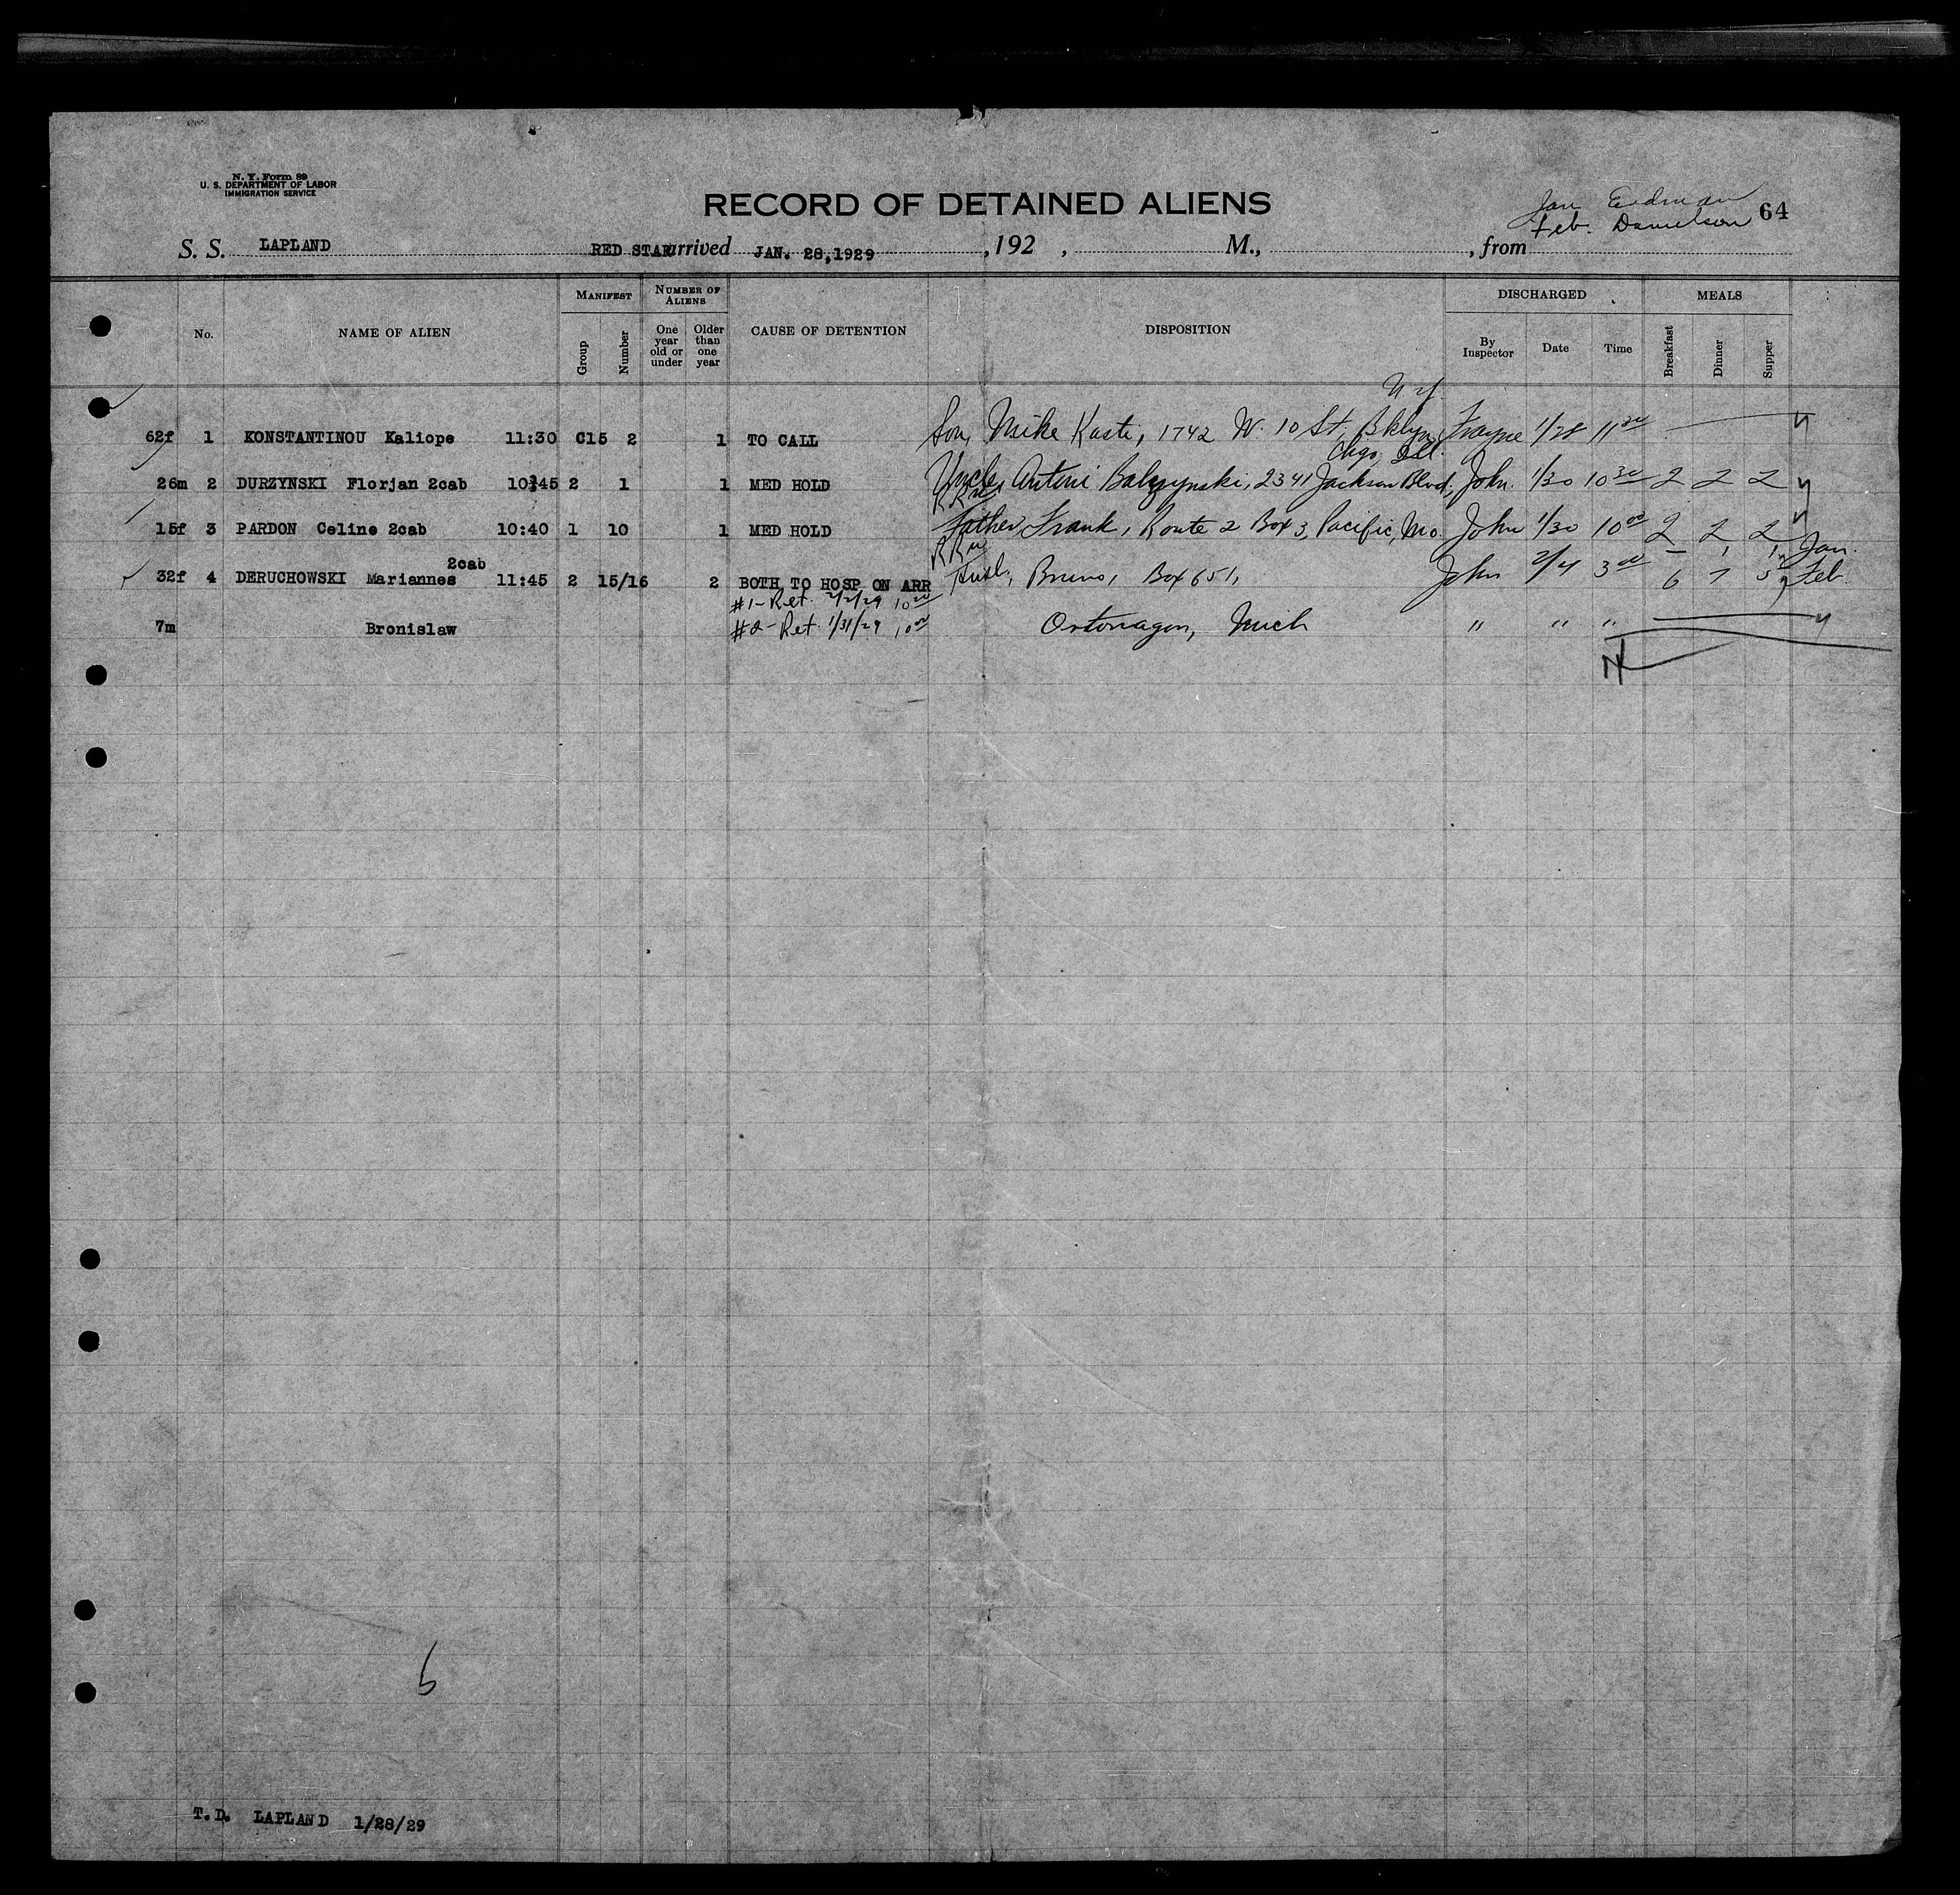 N. Y. Form 89
U. S. DEPARTMENT OF LABOR
IMMIGRATION SERVICE
RECORD OF DETAINED ALIENS
Jan Erdman
Feb. Danielson 64
S. S. LAPLAND RED STAR arrived JAN. 28,1929 , 192 , M., , from
No. NAME OF ALIEN MANIFEST Group Number NUMBER OF ALIENS One year old or under Older than one year CAUSE OF DETENTION DISPOSITION DISCHARGED By Inspector Date Time MEALS Breakfast Dinner Supper
N.Y.
62f 1 KONSTANTINOU Kaliope 11:30 C15 2 1 TO CALL Son, Mike Kosti, 1742 W. 10 St, Bklyn, Frayne 1/28 11 30
Chgo, Ill.
26m 2 DURZYNSKI Florjan 2cab 10:45 2 1 1 MED HOLD Uncle, Antoni 2341 Jackson Blvd, John 1/30 10 30 2 2 2
RR
15f 3 PARDON Celine 2cab 10:40 1 10 1 MED HOLD Father, Frank, Route 2 Box 3, Pacific, Mo. John 1/30 10 00 2 2 2
RR – 1 1 Jan.
2cab
32f 4 DERUCHOWSKI Mariannes 11:45 2 15/16 2 BOTH TO HOSP ON ARR Husb, Bruno, Box 651, John 2/4 3 00 6 7 5 Feb.
#1- Ret. 2/2/29 10 30
7m Bronislaw #2- Ret. 1/31/29 10 00 Ontonagon, Mich " " "
6
T.D. LAPLAND 1/28/29